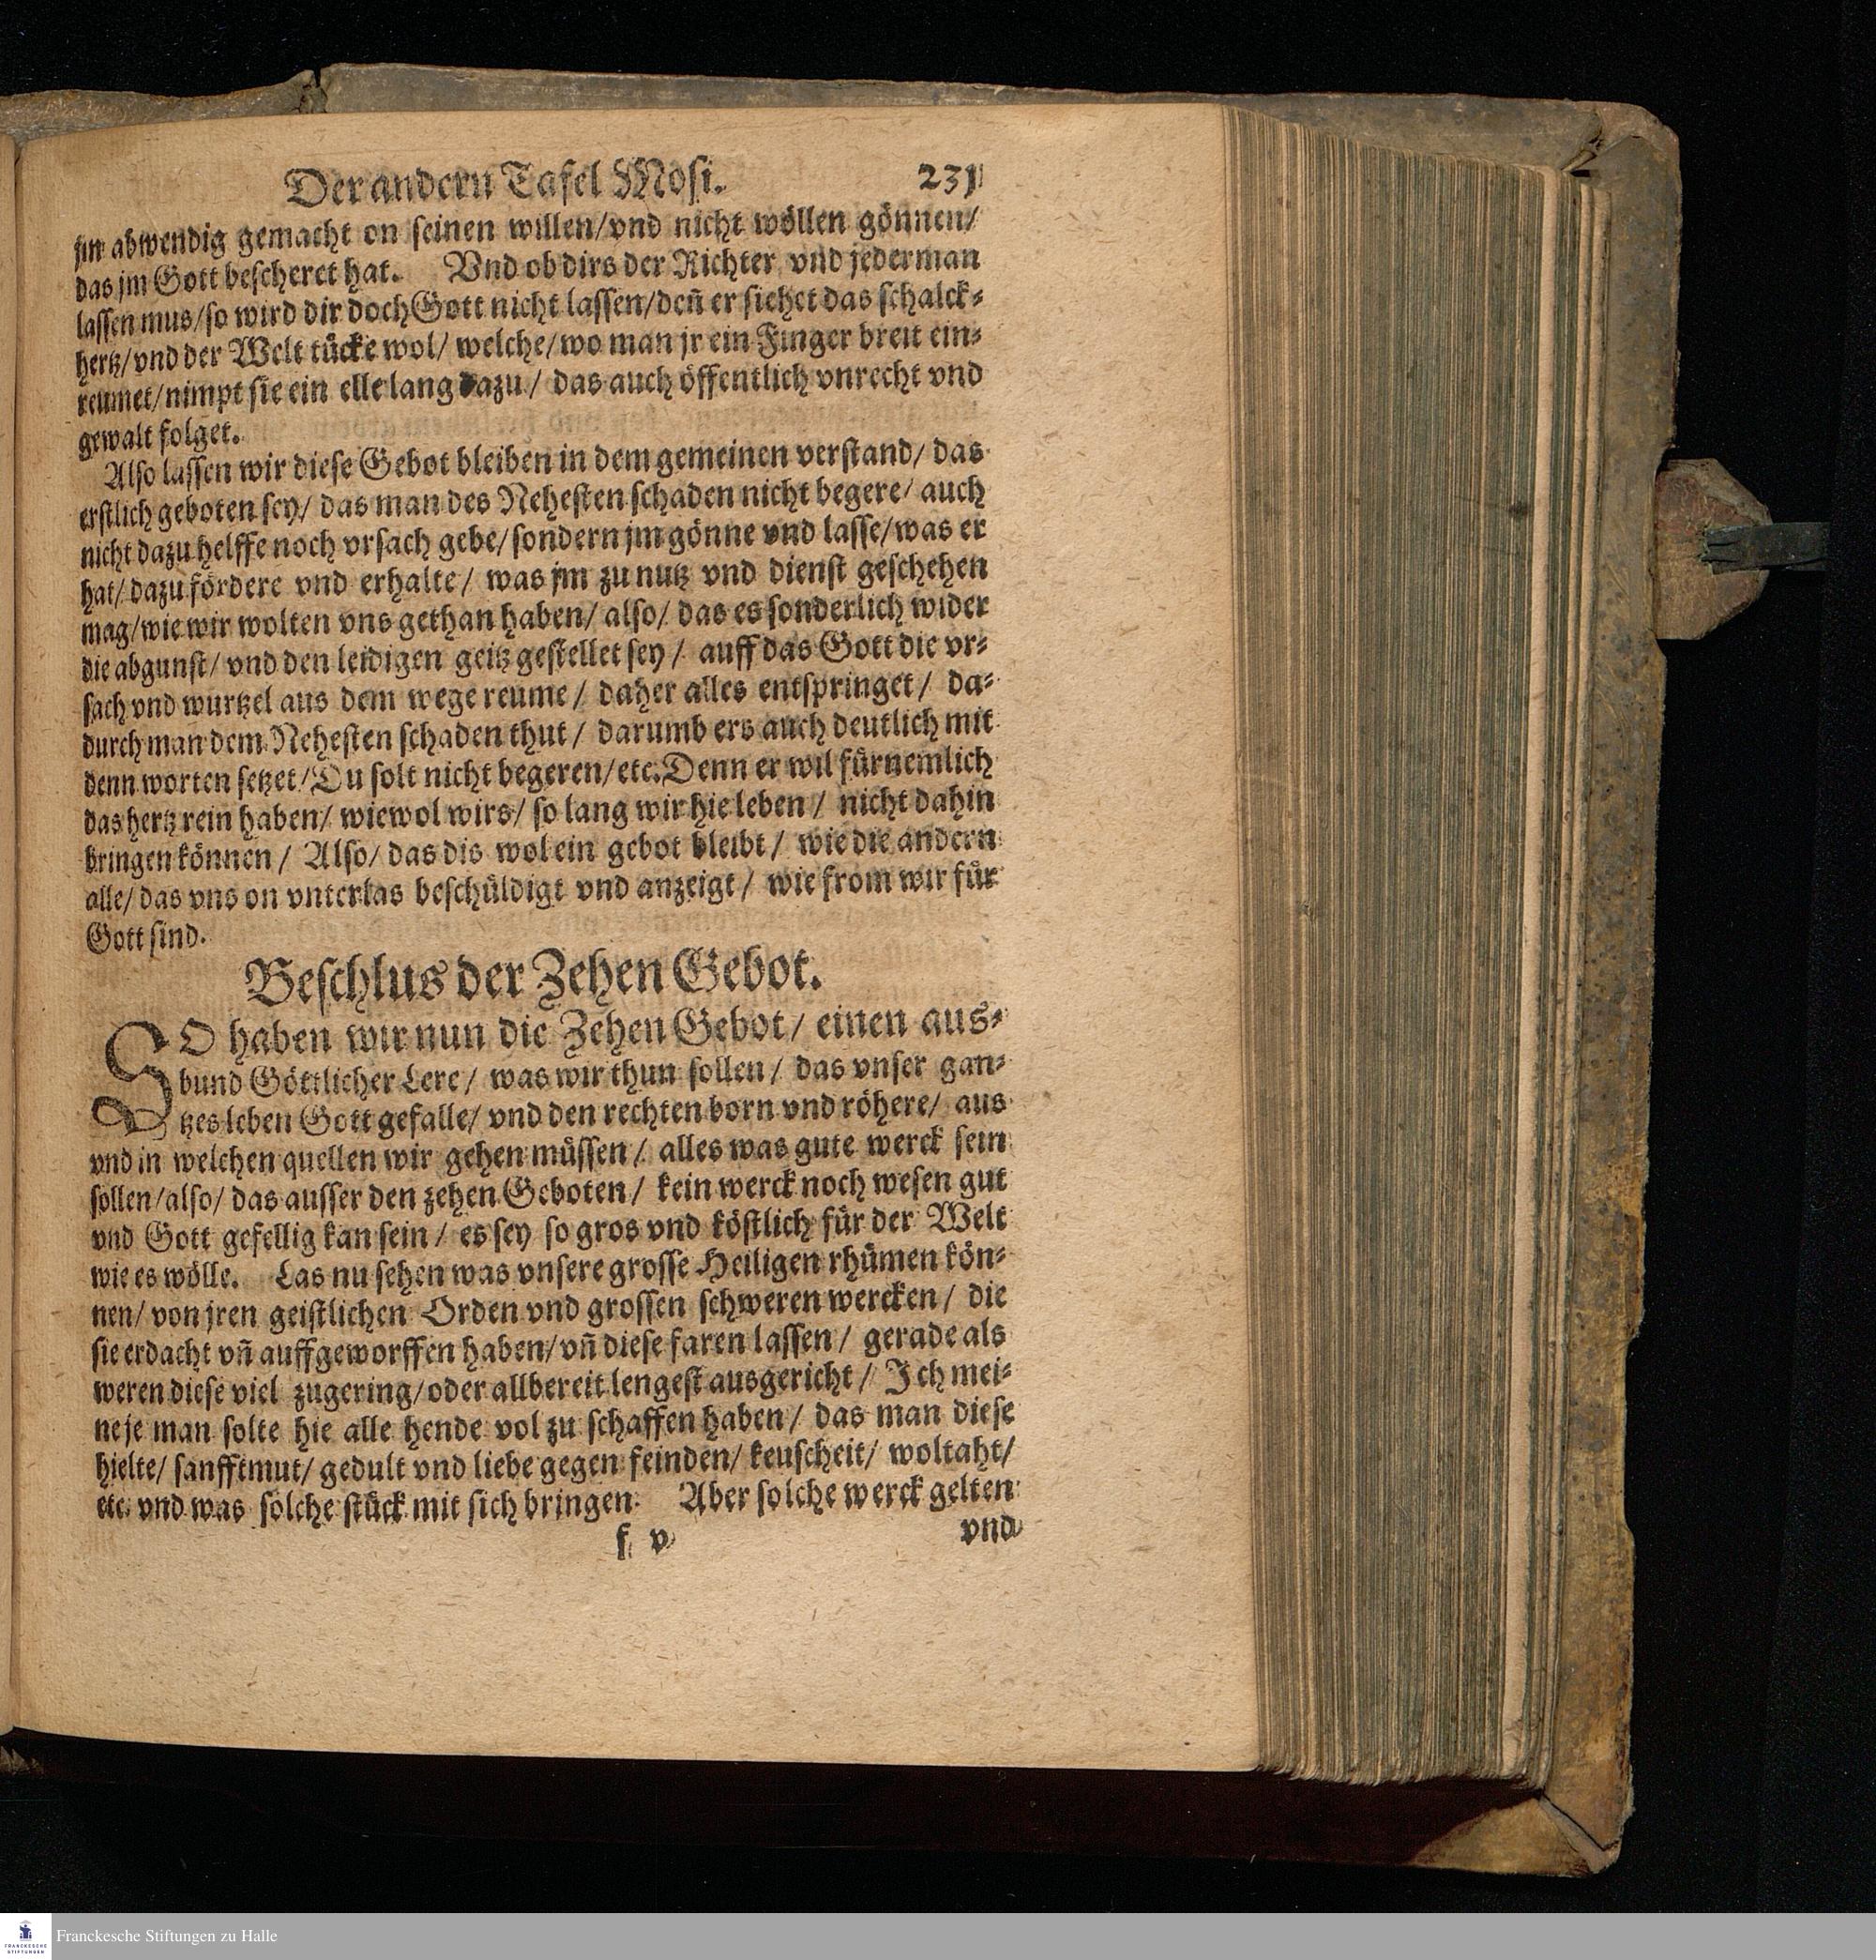 Der andern Tafel Mosi. 231
jm abwendig gemacht on seinen willen/vnd nicht wöllen gönnen/
das jm Gott bescheret hat. Vnd ob dirs der Richter vnd jederman
lassen mus/so wird dir doch Gott nicht lassen/deñ er siehet das schalck⸗
hertz/vnd der Welt tücke wol/ welche/wo man jr ein Finger breit ein⸗
reumet/nimpt sie ein elle lang dazu/ das auch öffentlich vnrecht vnd
gewalt folget.
Also lassen wir diese Gebot bleiben in dem gemeinen verstand/ das
erstlich geboten sey/ das man des Nehesten schaden nicht begere/ auch
nicht dazu helffe noch vrsach gebe/sondern jm gönne vnd lasse/was er
hat/ dazu fördere vnd erhalte/ was jm zu nutz vnd dienst geschehen
mag/wie wir wolten vns gethan haben/ also/ das es sonderlich wider
die abgunst/ vnd den leidigen geitz gestellet sey/ auff das Gott die vr⸗
sach vnd wurtzel aus dem wege reume/ daher alles entspringet/ da⸗
durch man dem Nehesten schaden thut/ darumb ers auch deutlich mit
denn worten setzet/Du solt nicht begeren/etc.Denn er wil fürnemlich
das hertz rein haben/ wiewol wirs/ so lang wir hie leben/ nicht dahin
bringen können/ Also/ das dis wol ein gebot bleibt/ wie die andern
alle/ das vns on vnterlas beschüldigt vnd anzeigt/ wie from wir für
Gott sind.
Beschlus der Zehen Gebot.
SO haben wir nun die Zehen Gebot/ einen aus⸗
bund Göttlicher Lere/ was wir thun sollen/ das vnser gan⸗
tzes leben Gott gefalle/ vnd den rechten born vnd röhere/ aus
vnd in welchen quellen wir gehen müssen/ alles was gute werck sein
sollen/also/ das ausser den zehen Geboten/ kein werck noch wesen gut
vnd Gott gefellig kan sein/ es sey so gros vnd köstlich für der Welt
wie es wölle. Las nu sehen was vnsere grosse Heiligen rhümen kön⸗
nen/ von jren geistlichen Orden vnd grossen schweren wercken/ die
sie erdacht vñ auffgeworffen haben/vñ diese faren lassen/ gerade als
weren diese viel zugering/oder allbereit lengest ausgericht/ Ich mei⸗
ne je man solte hie alle hende vol zu schaffen haben/ das man diese
hielte/ sanfftmut/ gedult vnd liebe gegen feinden/ keuscheit/ woltaht/
etc. vnd was solche stück mit sich bringen. Aber solche werck gelten
f v vnd
Franckesche Stiftungen zu Halle
FRANCKESCHE
STIFTUNGEN